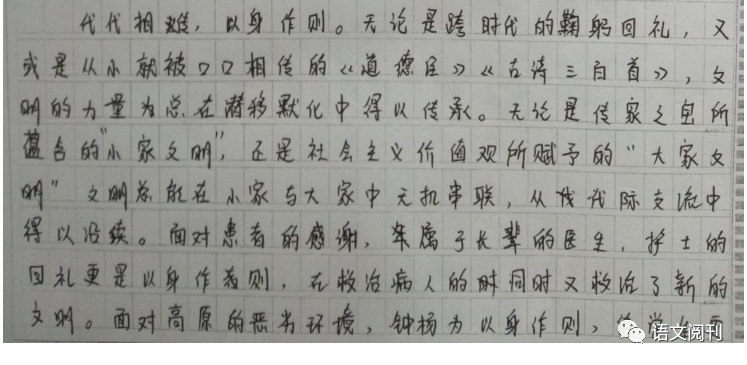 代代相难，以身作则。无论是跨时代的鞠躬回礼，又
或是从小就被口口相传的《道德经》《古诗三百首》，文
明的力量为总在潜移默化中得以传承。无论是传家之宝所
蕴含的"小家文明"，还是社会主义价值观所赋予的"大家文
明"文明总能在小家与大家中无机串联，从代代际交流中
得以沿续。面对患者的感谢，年属于长辈的医生，护士的
回礼更是以身作为则，在救治病人的时同时又救治了新的
文明。面对高原的恶劣环境，钟扬为以身作则，
语文阅刊